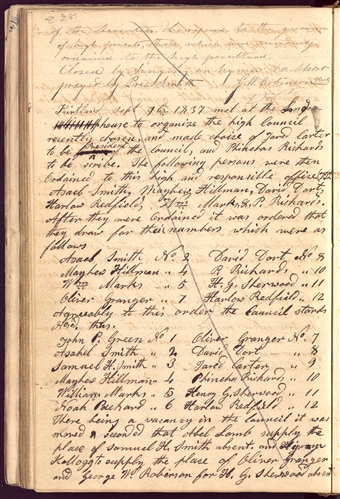 228
of the
of high priests, those which have previously
ordained to the high priesthood.
Closed by singing an hymn & a short
prayer by President
Kirtland Sept 9th 1837 met at the Lords
house to organize the high council
recently chosen and made choice of Jared Carter
to be President of the council, and Phinehas Richards
to be scribe. The following persons were then
ordained to this high and responsible office
Asael Smith, Mayhew Hillman, David Dort,
Harlow Redfield, Wm Marks & P. Richards.
After they were ordained it was ordered that
they draw for their numbers which were as
follows
Asael Smith No 2 David Dort No 8
Mayhew Hillman " 4 P. Richards " 10
Wm Marks " 5 H. G. Sherwood " 11
Oliver Granger " 7 Harlow Redfield " 12
Agreeably to this order the Council stands
thus.
John P. Green No 1 Oliver Granger No 7
Asahel Smith " 2 David Dort " 8
Samuel H. Smith " 3 Jared Carter " 9
Mayhew Hillman " 4 Phinehas Richards " 10
William Marks " 5 Henry G. Sherwood " 11
Noah Packard " 6 Harlow Redfield " 12
There being a vacancy in the council it was
moved & seconded that Abel Lamb supply the
place of Samuel H. Smith absent and Hyram
Kellogg to supply the place of Oliver Granger
and George W. Robinson for H. G. Sherwood absent